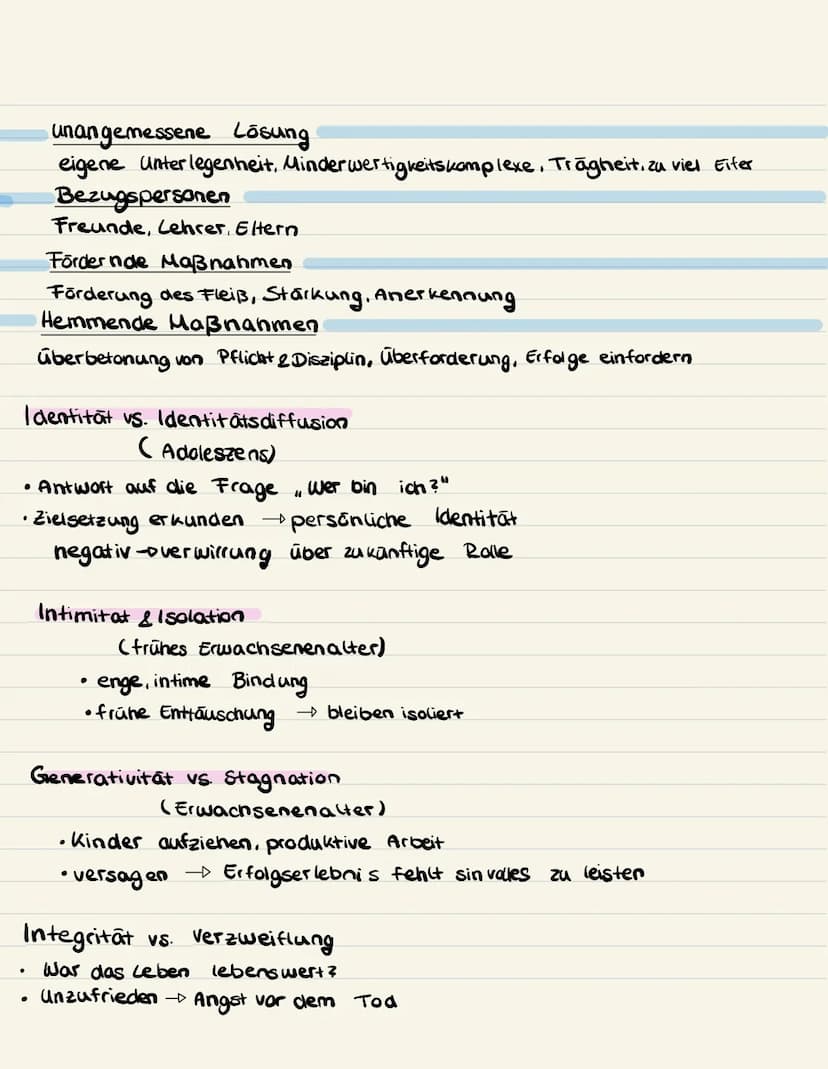 unangemessene Lösung
eigene Unterlegenheit, Minderwertigkeitskomplexe, Trägheit, zu viel Eifer
Bezugspersonen
Freunde, Lehrer, Eltern
Fördernde Maßnahmen
Förderung des Fleiß, Stärkung, Anerkennung
Hemmende Maßnahmen
überbetonung von Pflicht & Disziplin, Überforderung, Erfolge einfordern
Identität vs. Identitätsdiffusion
(Adoleszens)
• Antwort auf die Frage „Wer bin ich?"
• Zielsetzung erkunden → persönliche Identität
negativ → verwirrung über zukünftige Rolle
Intimitat & Isolation
(frühes Erwachsenenalter)
• enge, intime Bindung
• frühe Enttäuschung → bleiben isoliert
Generativität vs. Stagnation
(Erwachsenenalter)
• Kinder aufziehen, produktive Arbeit
• versagen → Erfolgserlebnis fehlt sinvolles zu leisten
Integrität vs. Verzweiflung
• War das Leben lebenswert?
• Unzufrieden → Angst vor dem Tod